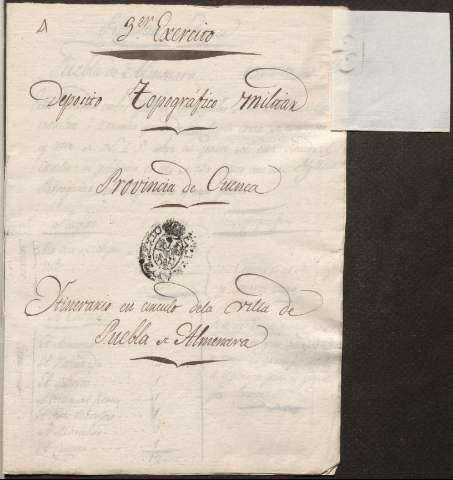 A
3er Exercito
Deposito Topografico Militar
Provincia de Cuenca
Itinerario en circulo dela Villa de
Puebla de Almenara